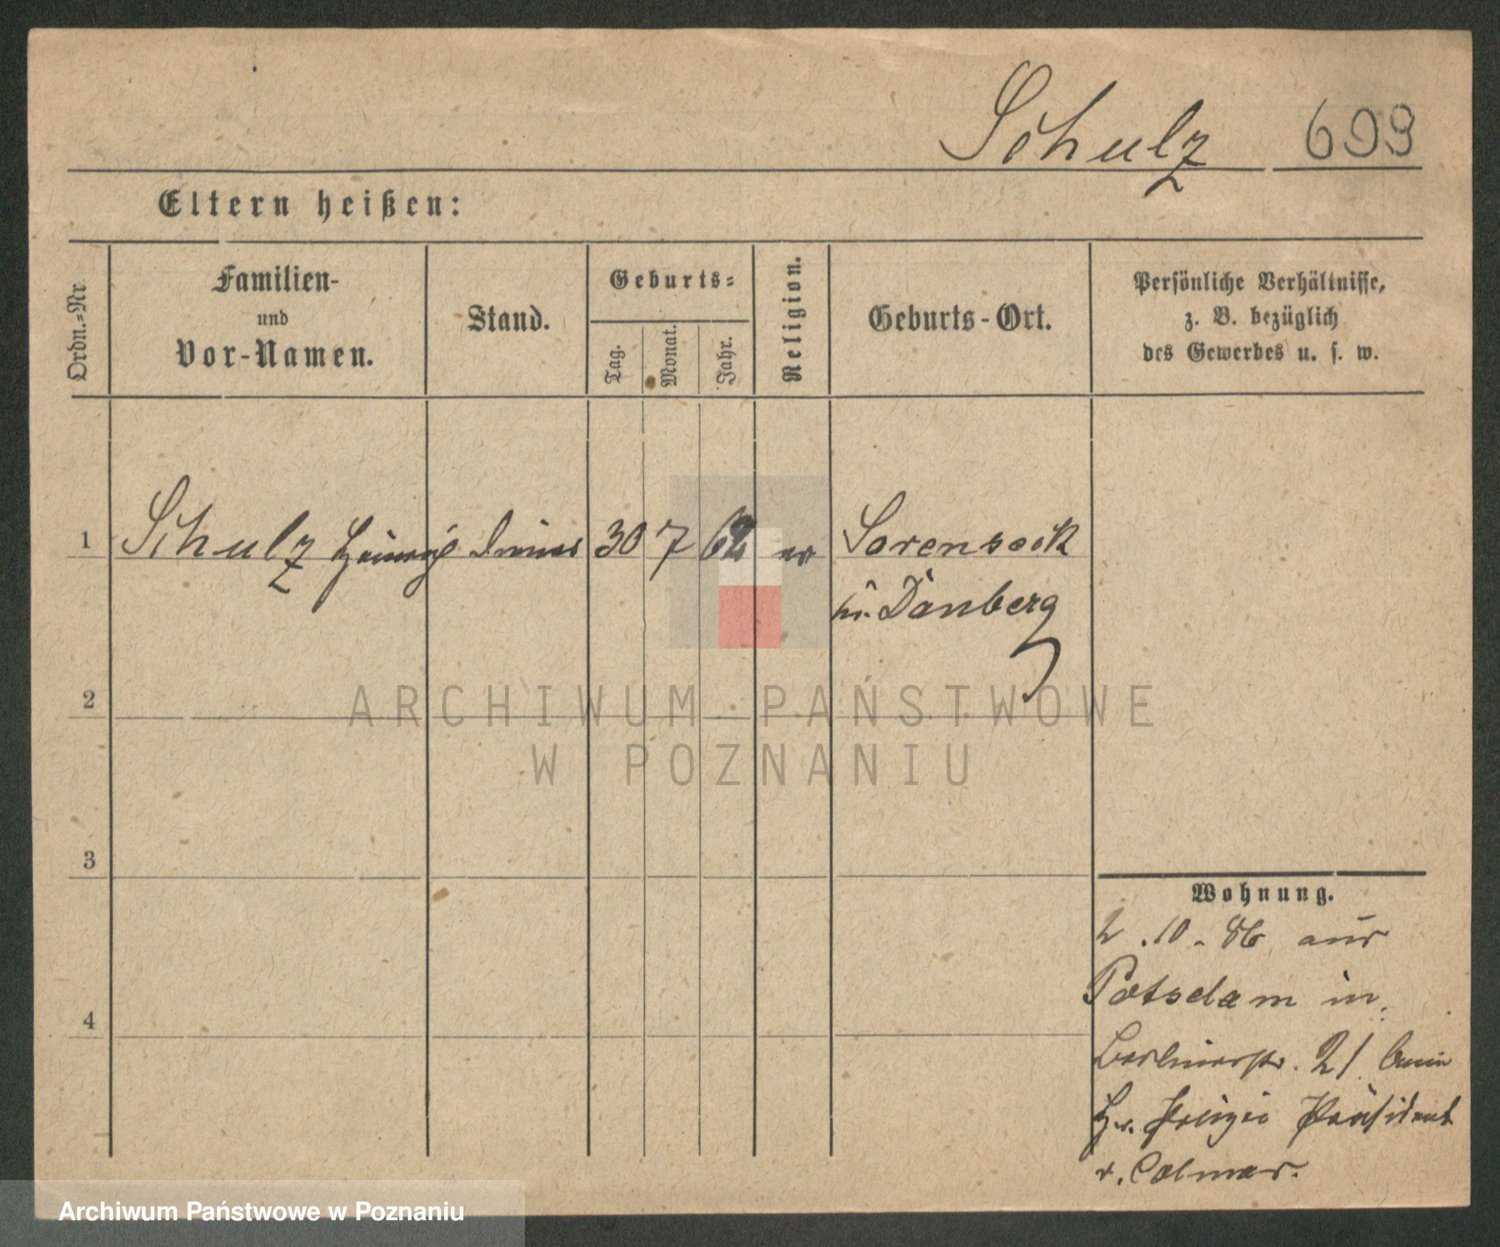 Schulz 699
Eltern heißen:
Ordn.-Nr.
Familien-
und
Vor-Namen.
Stand.
Geburts-
Tag.
Monat.
Jahr.
Religion.
Geburts-Ort.
Persönliche Verhältnisse,
z. B. bezüglich
des Gewerbes u. s. w.
1 Schulz Heinrich Diener 30 7 62 ev Sorenbock
Kr. Danberg
2
ARCHIWUM PAŃSTWOWE
W POZNANIU
3
Wohnung.
2.10.86 aus
Potsdam in
4
Berlinerstr. 21 beim
H. Polizei Präsident
v. Colmar.
Archiwum Państwowe w Poznaniu